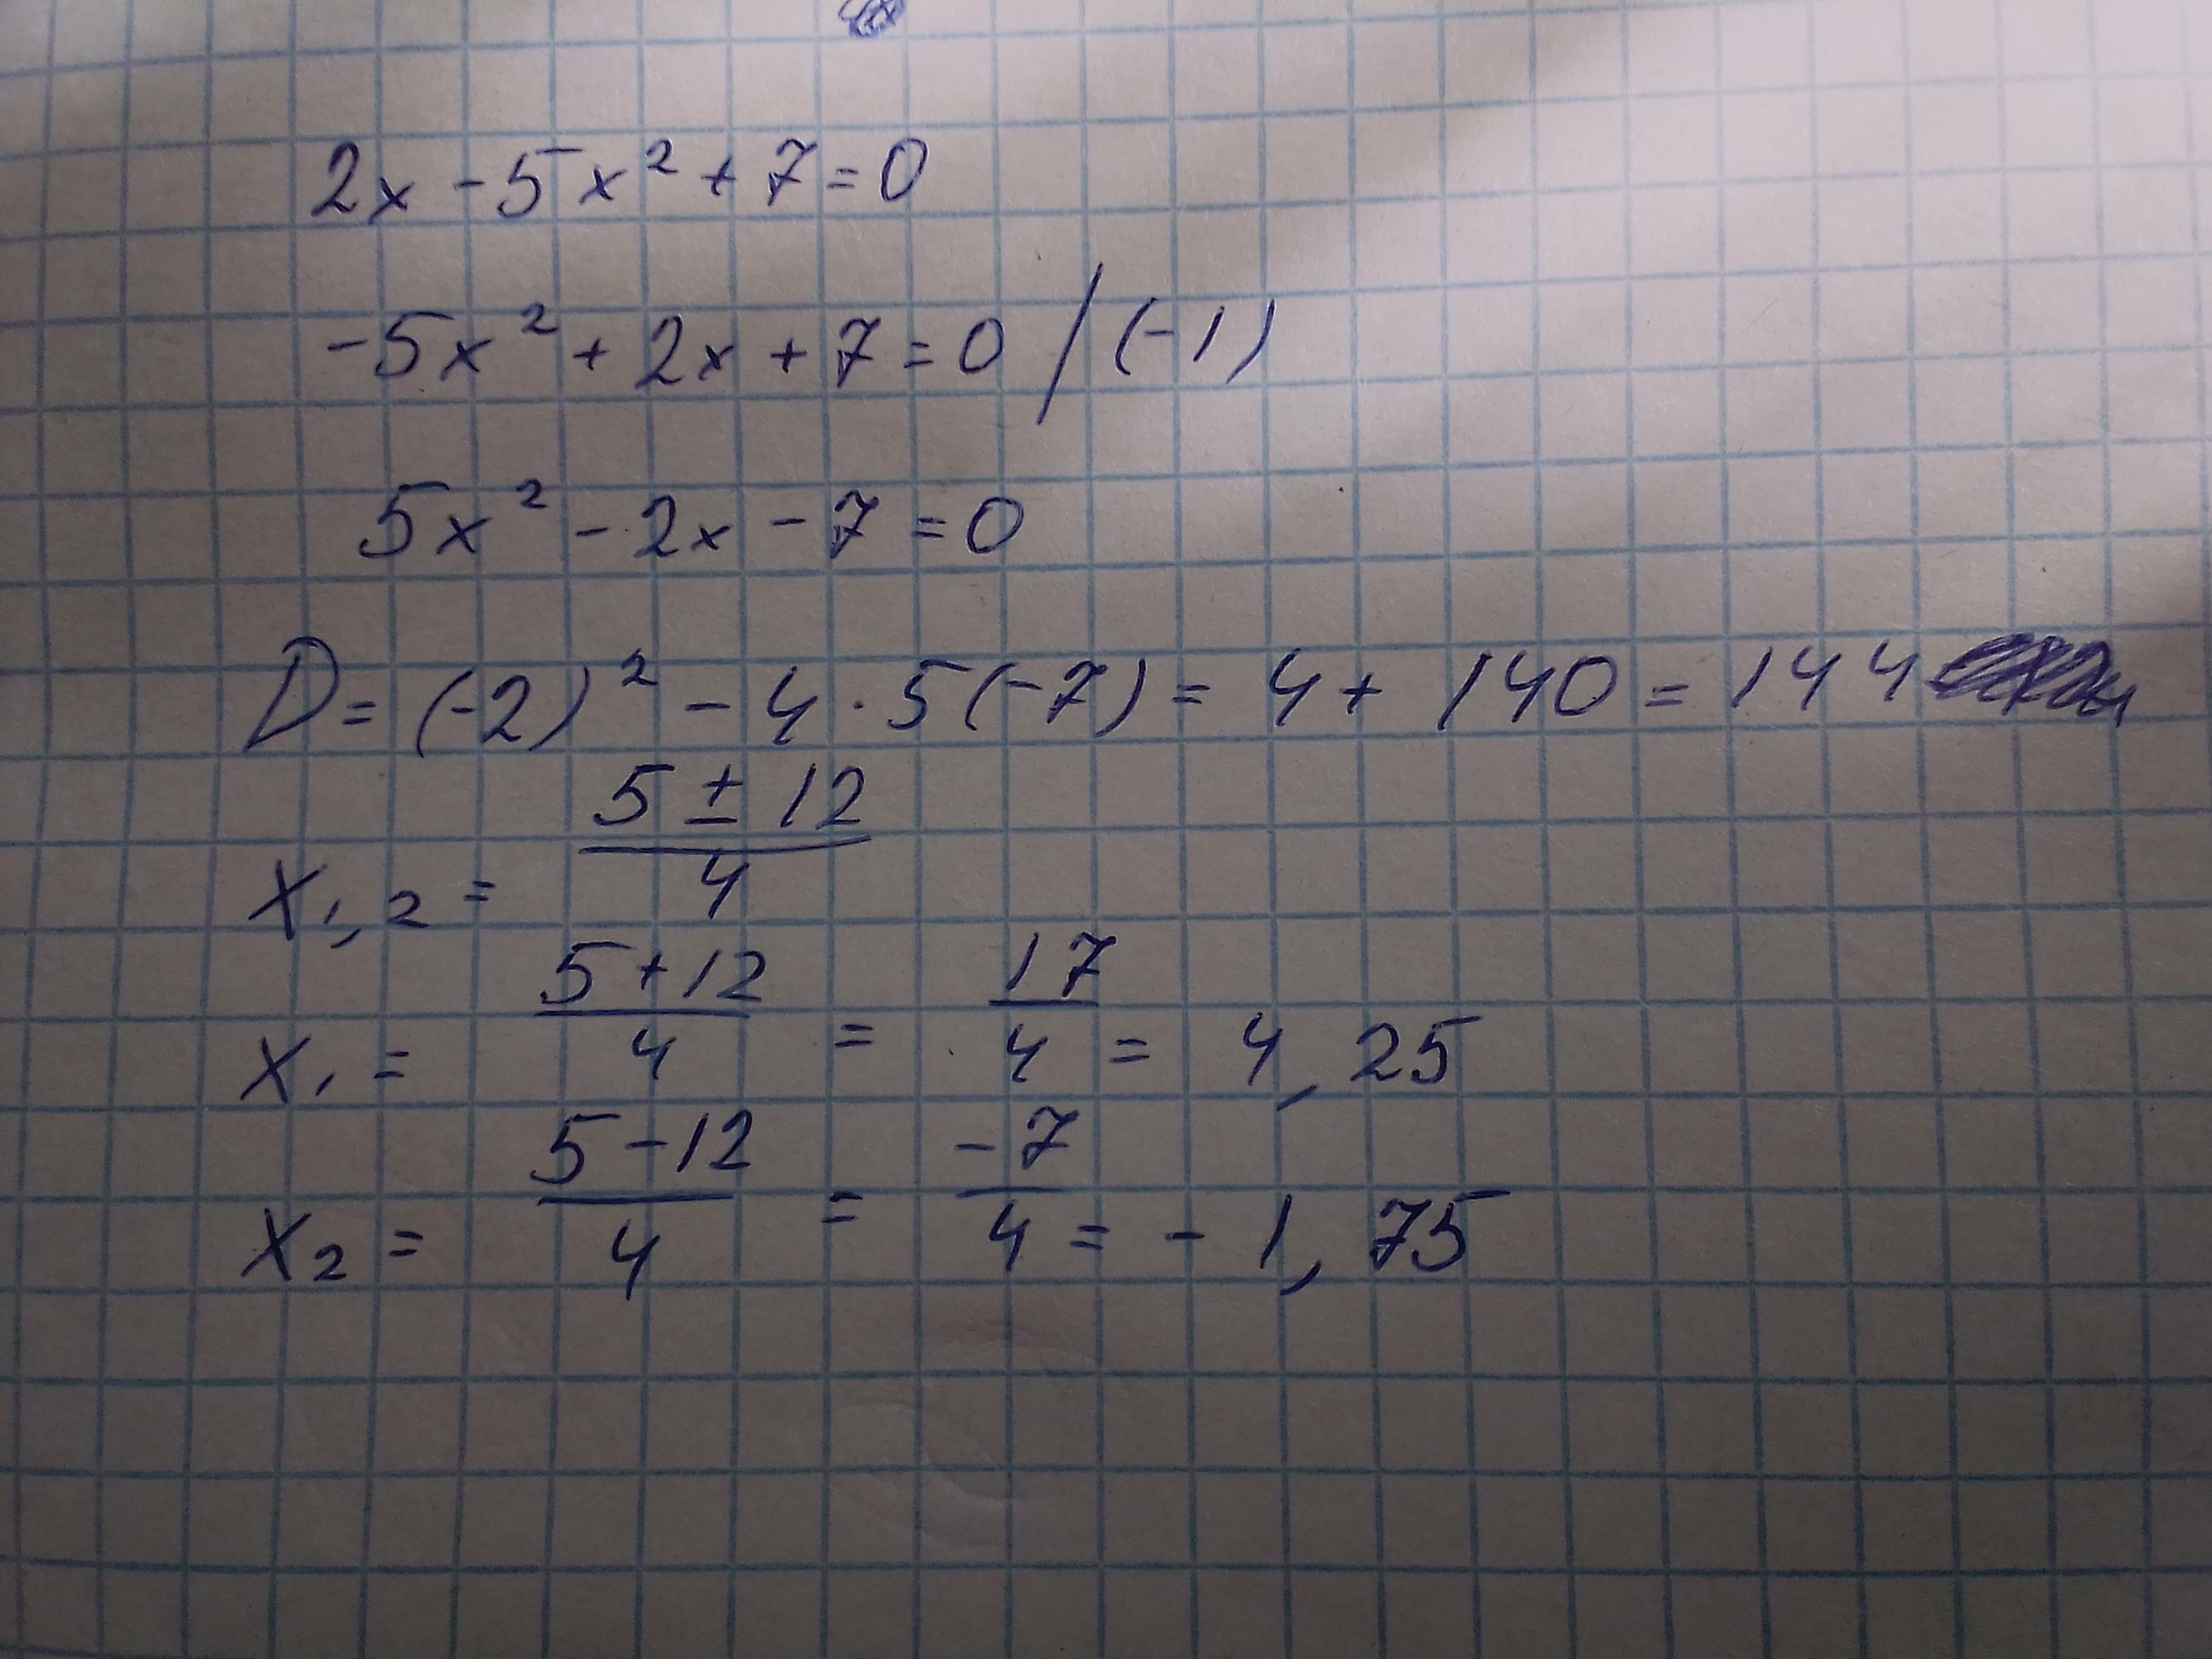 2x - 5x² + 7 = 0
-5x² + 2x + 7 = 0 / (-1)
5x² - 2x - 7 = 0
D = (-2)² - 4 · 5(-7) = 4 + 140 = 144
x₁,₂ = (5 ± 12)/4
x₁ = (5 + 12)/4 = 17/4 = 4,25
x₂ = (5 - 12)/4 = -7/4 = -1,75